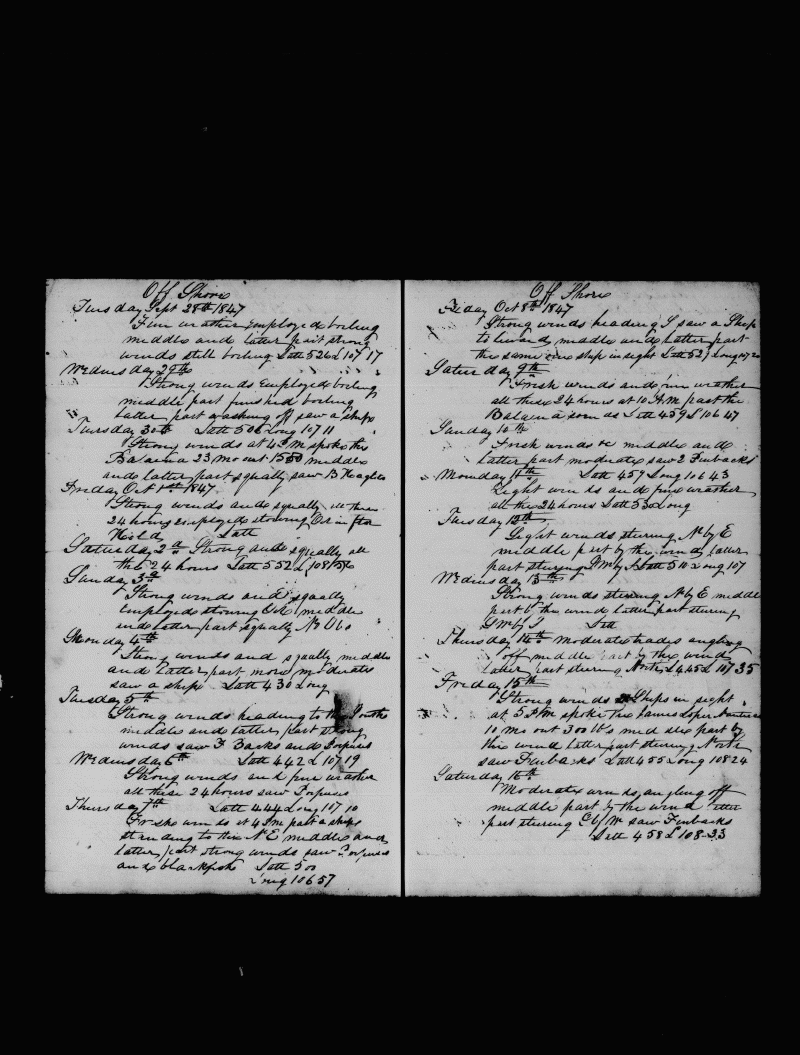 Off Shore
Tuesday Sept 28th 1847
Fine weather Employed boiling
middle and latter part strong
winds still boiling Latt 526 L 107 17
Wednesday 29th
Strong winds Employed boiling
middle part finished boiling
latter part washing off saw a ship
Thursday 30th Latt 506 Long 107 11
Strong winds at 4 P.M spoke the
Balaena 23 mo out 1550 middle
and latter part squally saw B Heaglis
Friday Oct 1st 1847
Strong winds and squally all these
24 hours employed stowing Oil in
Hold Latt
Saturday 2d Strong and squally all
the 24 hours Latt 552 L 108
Sunday 3d
Strong winds and squally
Employed stowing Oil middle
and latter part squally No Obs
Monday 4th
Strong winds and squally middle
and latter part more moderate
saw a ship Latt 430 Long
Tuesday 5th
Strong winds heading to the South
middle and latter part strong
winds saw F Backs and Porpuses
Wednesday 6th Latt 442 L 107 19
Strong winds and fine weather
all these 24 hours saw Porpuses
Thursday 7th Latt 444 Long 107 10
Fresh winds at 4 P.M past a ship
standing to the N E middle and
latter part strong winds saw Porpuses
and blackfish Latt 500
Long 106 57
Off Shore
Friday Oct 8th 1847
Strong winds heading S saw a Ship
to leward middle and latter part
the same one ship in sight Latt 521 Long 107
Saturday 9th
Fresh winds and fine weather
all these 24 hours at 10 A.M past the
Balaena Latt 459 L 106 47
Sunday 10th
Fresh winds &c middle and
latter part moderate saw 2 Finbacks
Monday 11th Latt 457 Long 106 43
Light winds and fine weather
all the 24 hours Latt 53 Long
Tuesday 12th
Light winds stering N by E
middle part by the wind latter
part stering S W by S Latt 510 Long 107
Wednesday 13th
Strong winds stering N by E middle
part by the wind latter part stering
S W by S Latt
Thursday 14th moderate trades angling
off middle part by the wind
latter part stering North L 445 L 107 35
Friday 15th
Strong winds Ships in sight
at 5 P.M spoke the James Loper Nantucket
10 mo out 300 bbls middle part by
the wind latter part stering North
saw Finbacks Latt 455 Long 108 24
Saturday 16th
Moderate winds angling off
middle part by the wind latter
part stering saw Finbacks
Latt 458 L 108 33